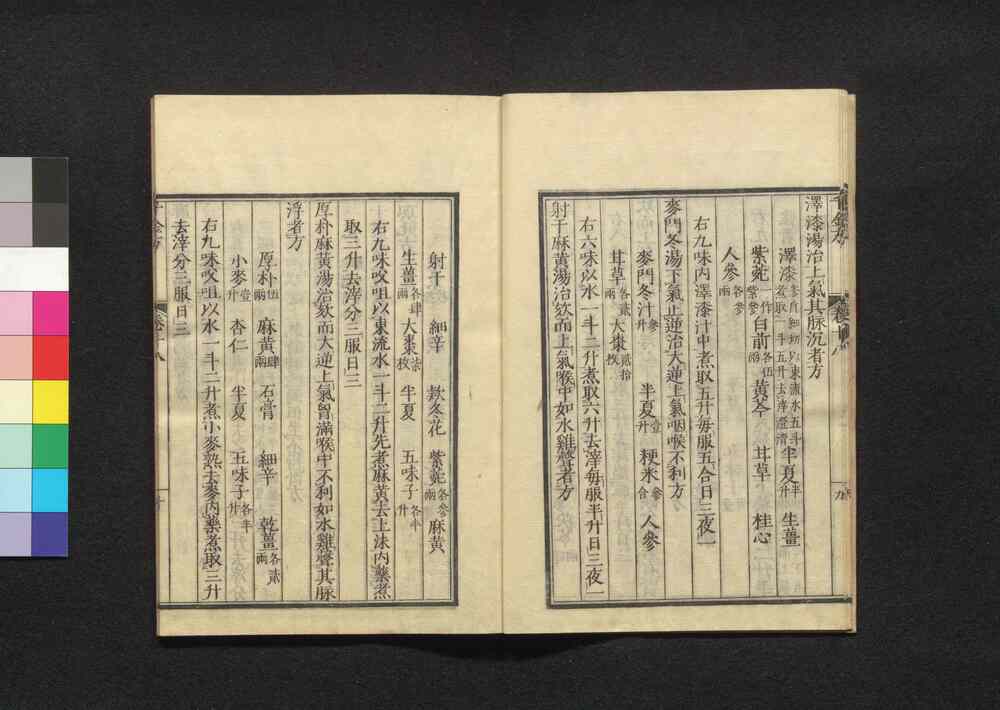 澤漆湯治上氣其脉沉者方
澤漆參斤細切以東流水五斗煮取一斗五升去滓澄清半夏半升 生薑
紫菀一作紫參白前各伍兩黃芩 甘草 桂心
人參各參兩
右九味內澤漆汁中煮取五升每服五合日三夜一
麥門冬湯下氣止逆治大逆上氣咽喉不利方
麥門冬汁參升 半夏壹升 粳米參合 人參
甘草各貳兩 大棗貳拾枚
右六味以水一斗二升煮取六升去滓每服半升日三夜一
射干麻黃湯治欬而上氣喉中如水雞聲者方
射干 細辛 款冬花 紫菀各參兩 麻黃
生薑各肆兩 大棗柒枚 半夏 五味子各半升
右九味㕮咀以東流水一斗二升先煮麻黃去上沫內藥煮
取三升去滓分三服日三
厚朴麻黃湯治欬而大逆上氣胷滿喉中不利如水雞聲其脉
浮者方
厚朴伍兩 麻黃肆兩 石膏 細辛 乾薑各貳兩
小麥壹升 杏仁 半夏 五味子各半升
右九味㕮咀以水一斗二升煮小麥熟去麥內藥煮取三升
去滓分三服日三